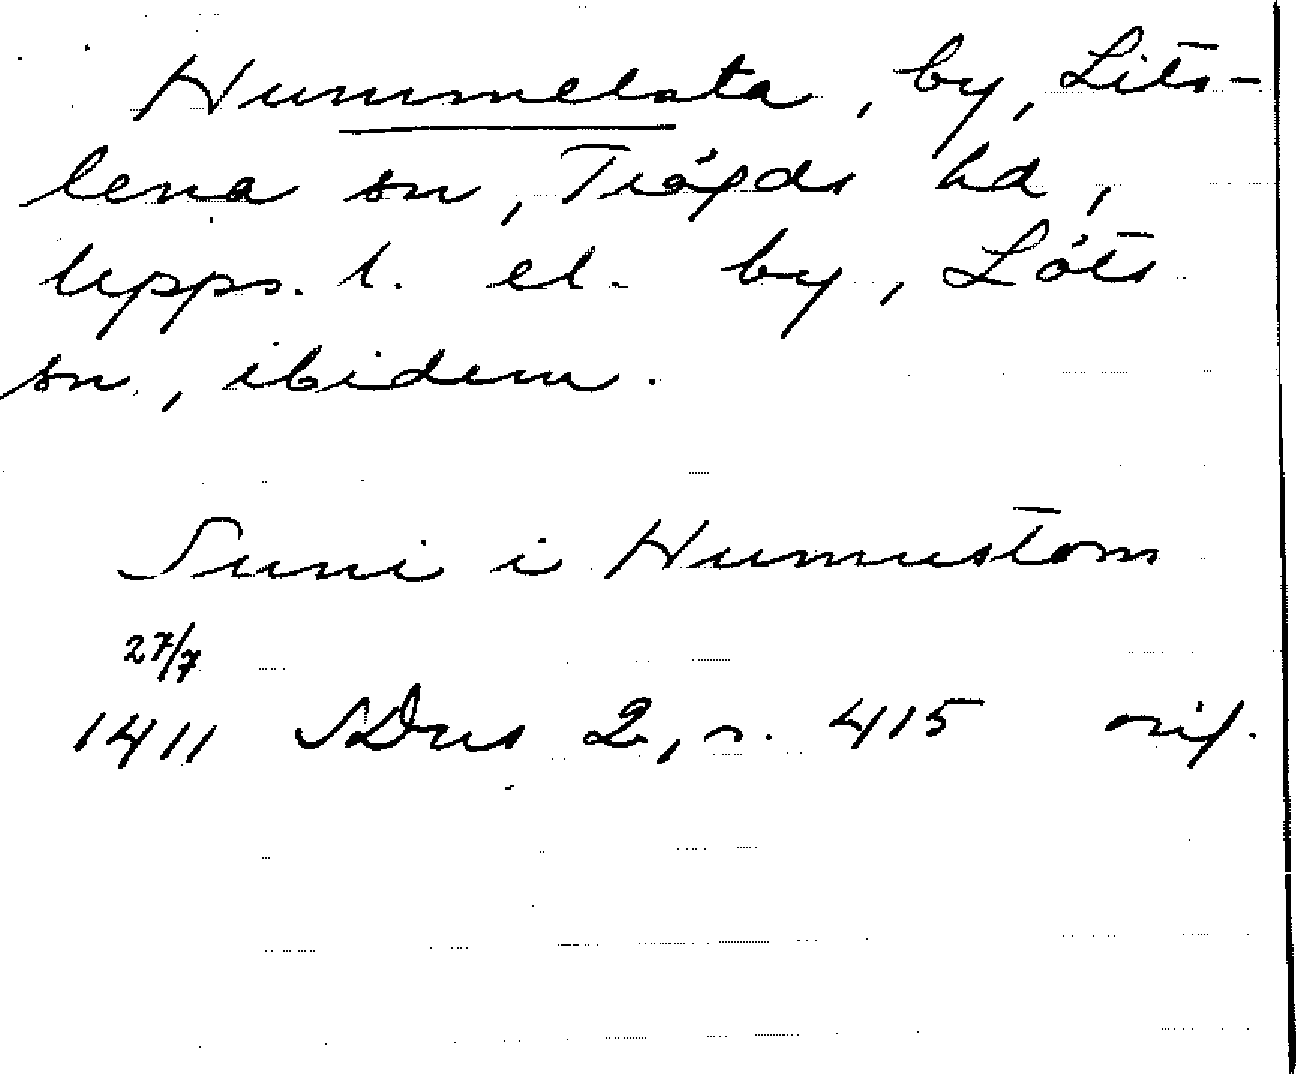 Hummelsta, by, Lits-
lena sn, Trögds hd,
Upps. l. el. by, Löts
sn, ibidem.
Suni i Humustom
27/7
1411 SDns 2, s. 415 orig.